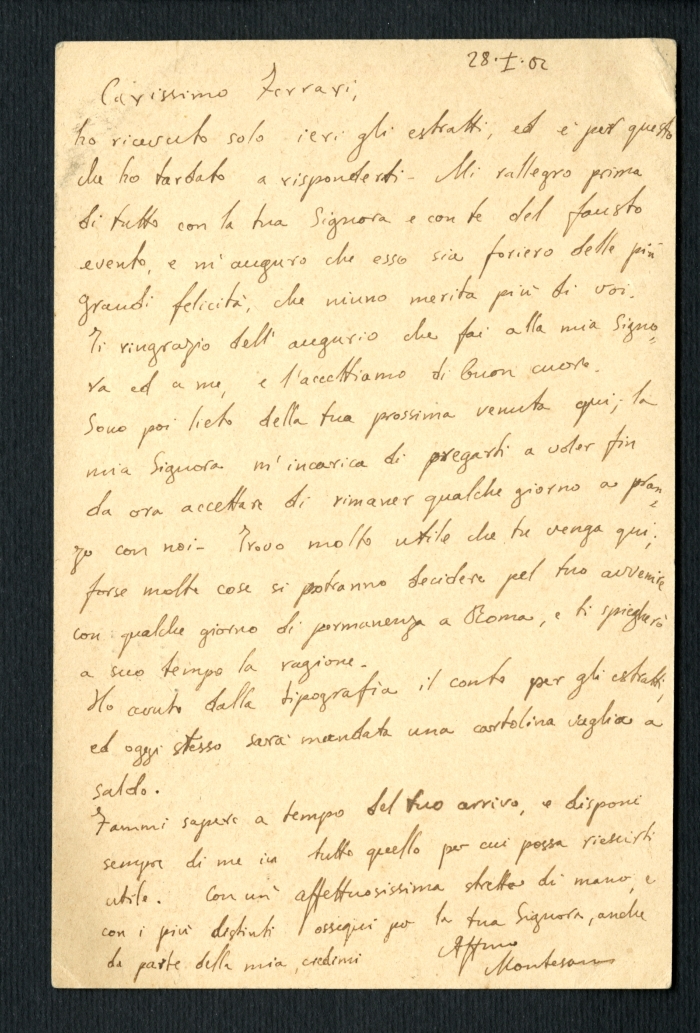 28·I·02
Carissimo Ferrari,
ho ricevuto solo ieri gli estratti, ed è per questo
che ho tardato a risponderti - Mi rallegro prima
di tutto con la tua Signora e con te del fausto
evento, e m'auguro che esso sia foriero delle più
grandi felicità, che niuno merita più di voi.
Ti ringrazio dell'augurio che fai alla mia Signo-
ra ed a me, e l'accettiamo di buon cuore.
Sono poi lieto della tua prossima venuta qui; la
mia Signora m'incarica di pregarti a voler fin
da ora accettare di rimaner qualche giorno a pran-
zo con noi - Trovo molto utile che tu venga qui;
forse molte cose si potranno decidere pel tuo avvenire
con qualche giorno di permanenza a Roma, e ti spiegherò
a suo tempo la ragione.
Ho avuto dalla tipografia il conto per gli estratti,
ed oggi stesso sarà mandata una cartolina vaglia a
saldo.
Fammi sapere a tempo del tuo arrivo, e disponi
sempre di me in tutto quello per cui possa riescirti
utile. Con un' affettuosissima stretta di mano, e
con i più distinti ossequi per la tua Signora, anche
da parte della mia, credimi
Affmo
Montesano